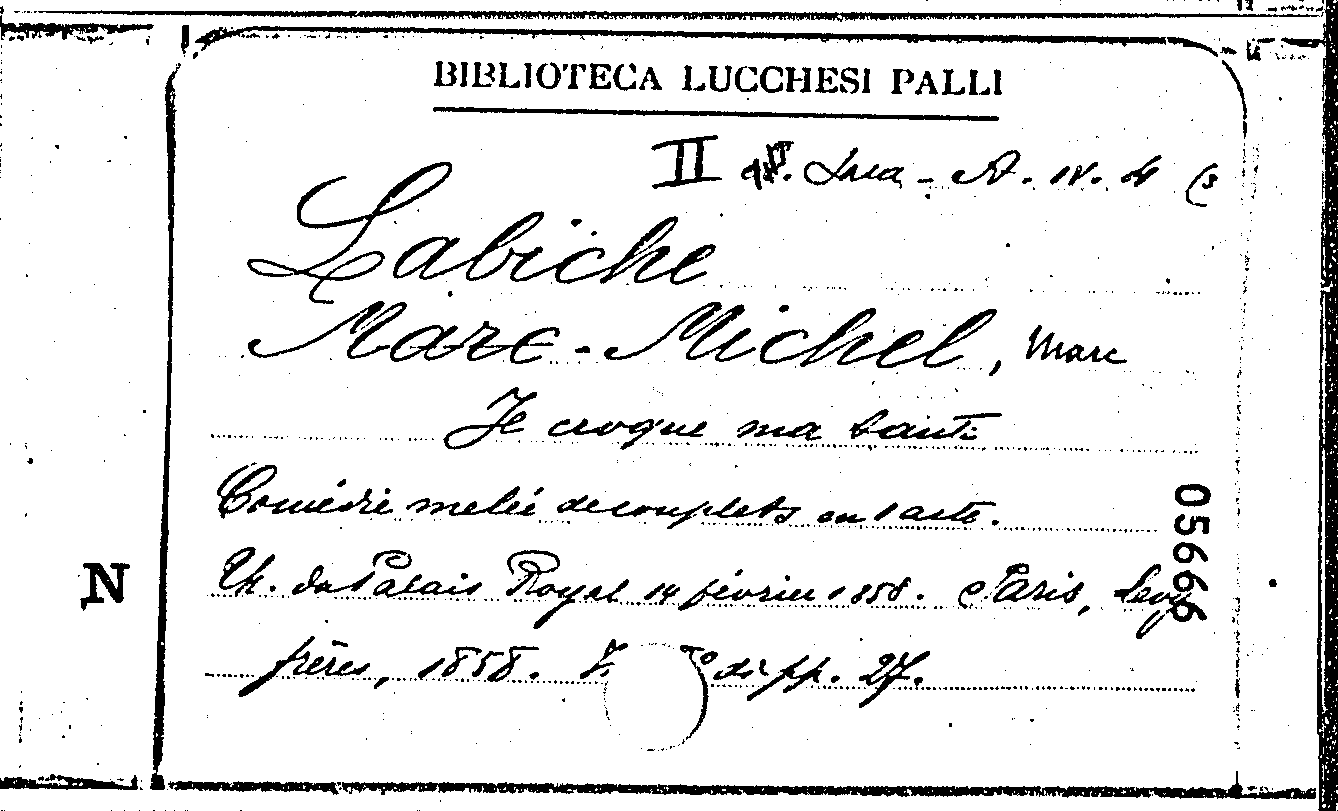 BIBLIOTECA LUCCHESI PALLI
II A. IV. 4 (3
Labiche
Marc-Michel, Marc
Je croque ma tante
Comédie melée de couplets en 1 acte.
Th. du Palais Royal 14 février 1858. Paris, Levy
frères, 1858. di pp. 27.
05666
N